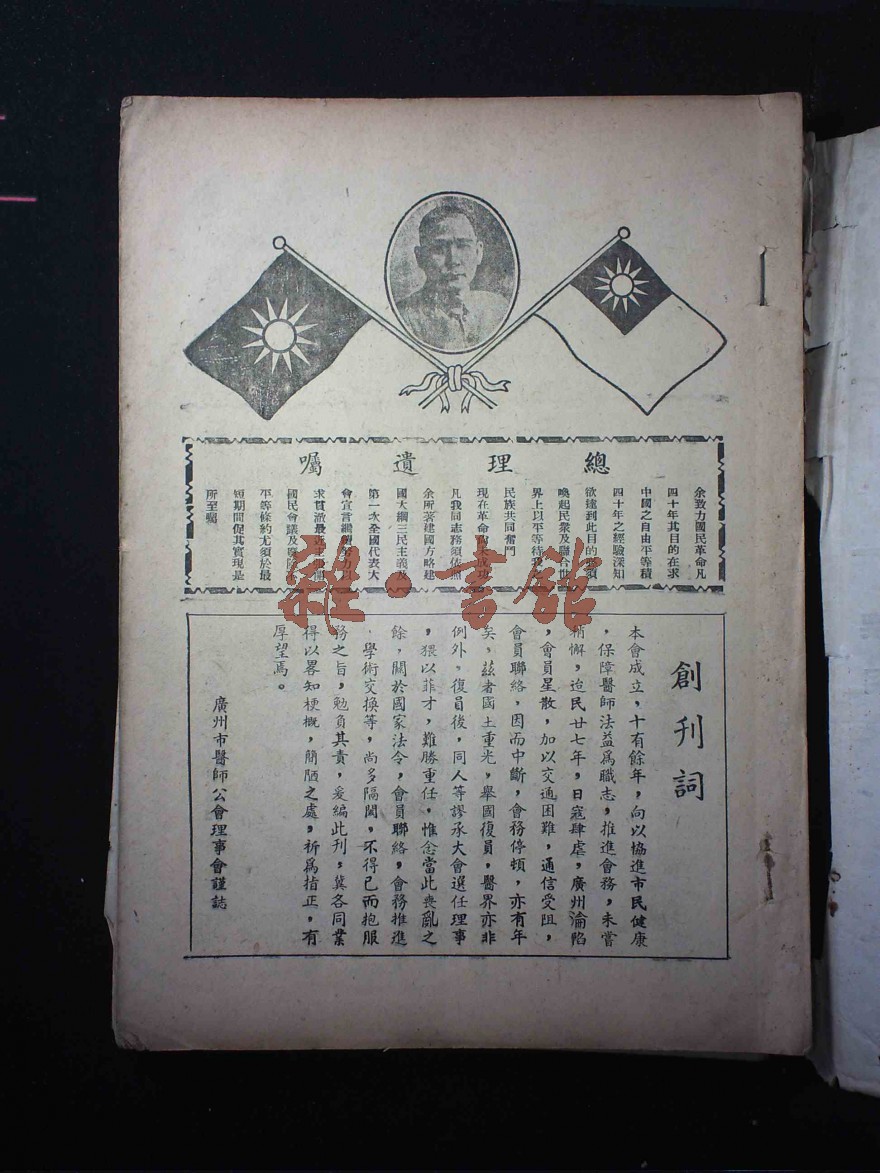 總理遺囑
余致力國民革命凡
四十年其目的在求
中國之自由平等積
四十年之經驗深知
欲達到此目的必須
喚起民衆及聯合世
界上以平等待我之
民族共同奮鬥
現在革命尚未成功
凡我同志務須依照
余所著建國方略建
國大綱三民主義及
第一次全國代表大
會宣言繼續努力以
求貫澈最近主張開
國民會議及廢除不
平等條約尤須於最
短期間促其實現是
所至囑
雜·書館
創刊詞
本會成立，十有餘年，向以協進市民健康
，保障醫師法益爲職志，推進會務，未嘗
稍懈，迨民廿七年，日寇肆虐，廣州淪陷
，會員星散，加以交通困難，通信受阻，
會員聯絡，因而中斷，會務停頓，亦有年
矣，茲者國土重光，舉國復員，醫界亦非
例外，復員後，同人等謬承大會選任理事
，猥以菲才，難勝重任，惟念當此喪亂之
餘，關於國家法令，會員聯絡，會務推進
，學術交換等，尚多隔閡，不得已而抱服
務之旨，勉負其責，爰編此刊，冀各同業
得以畧知梗概，簡陋之處，祈爲指正，有
厚望焉。
廣州市醫師公會理事會謹誌